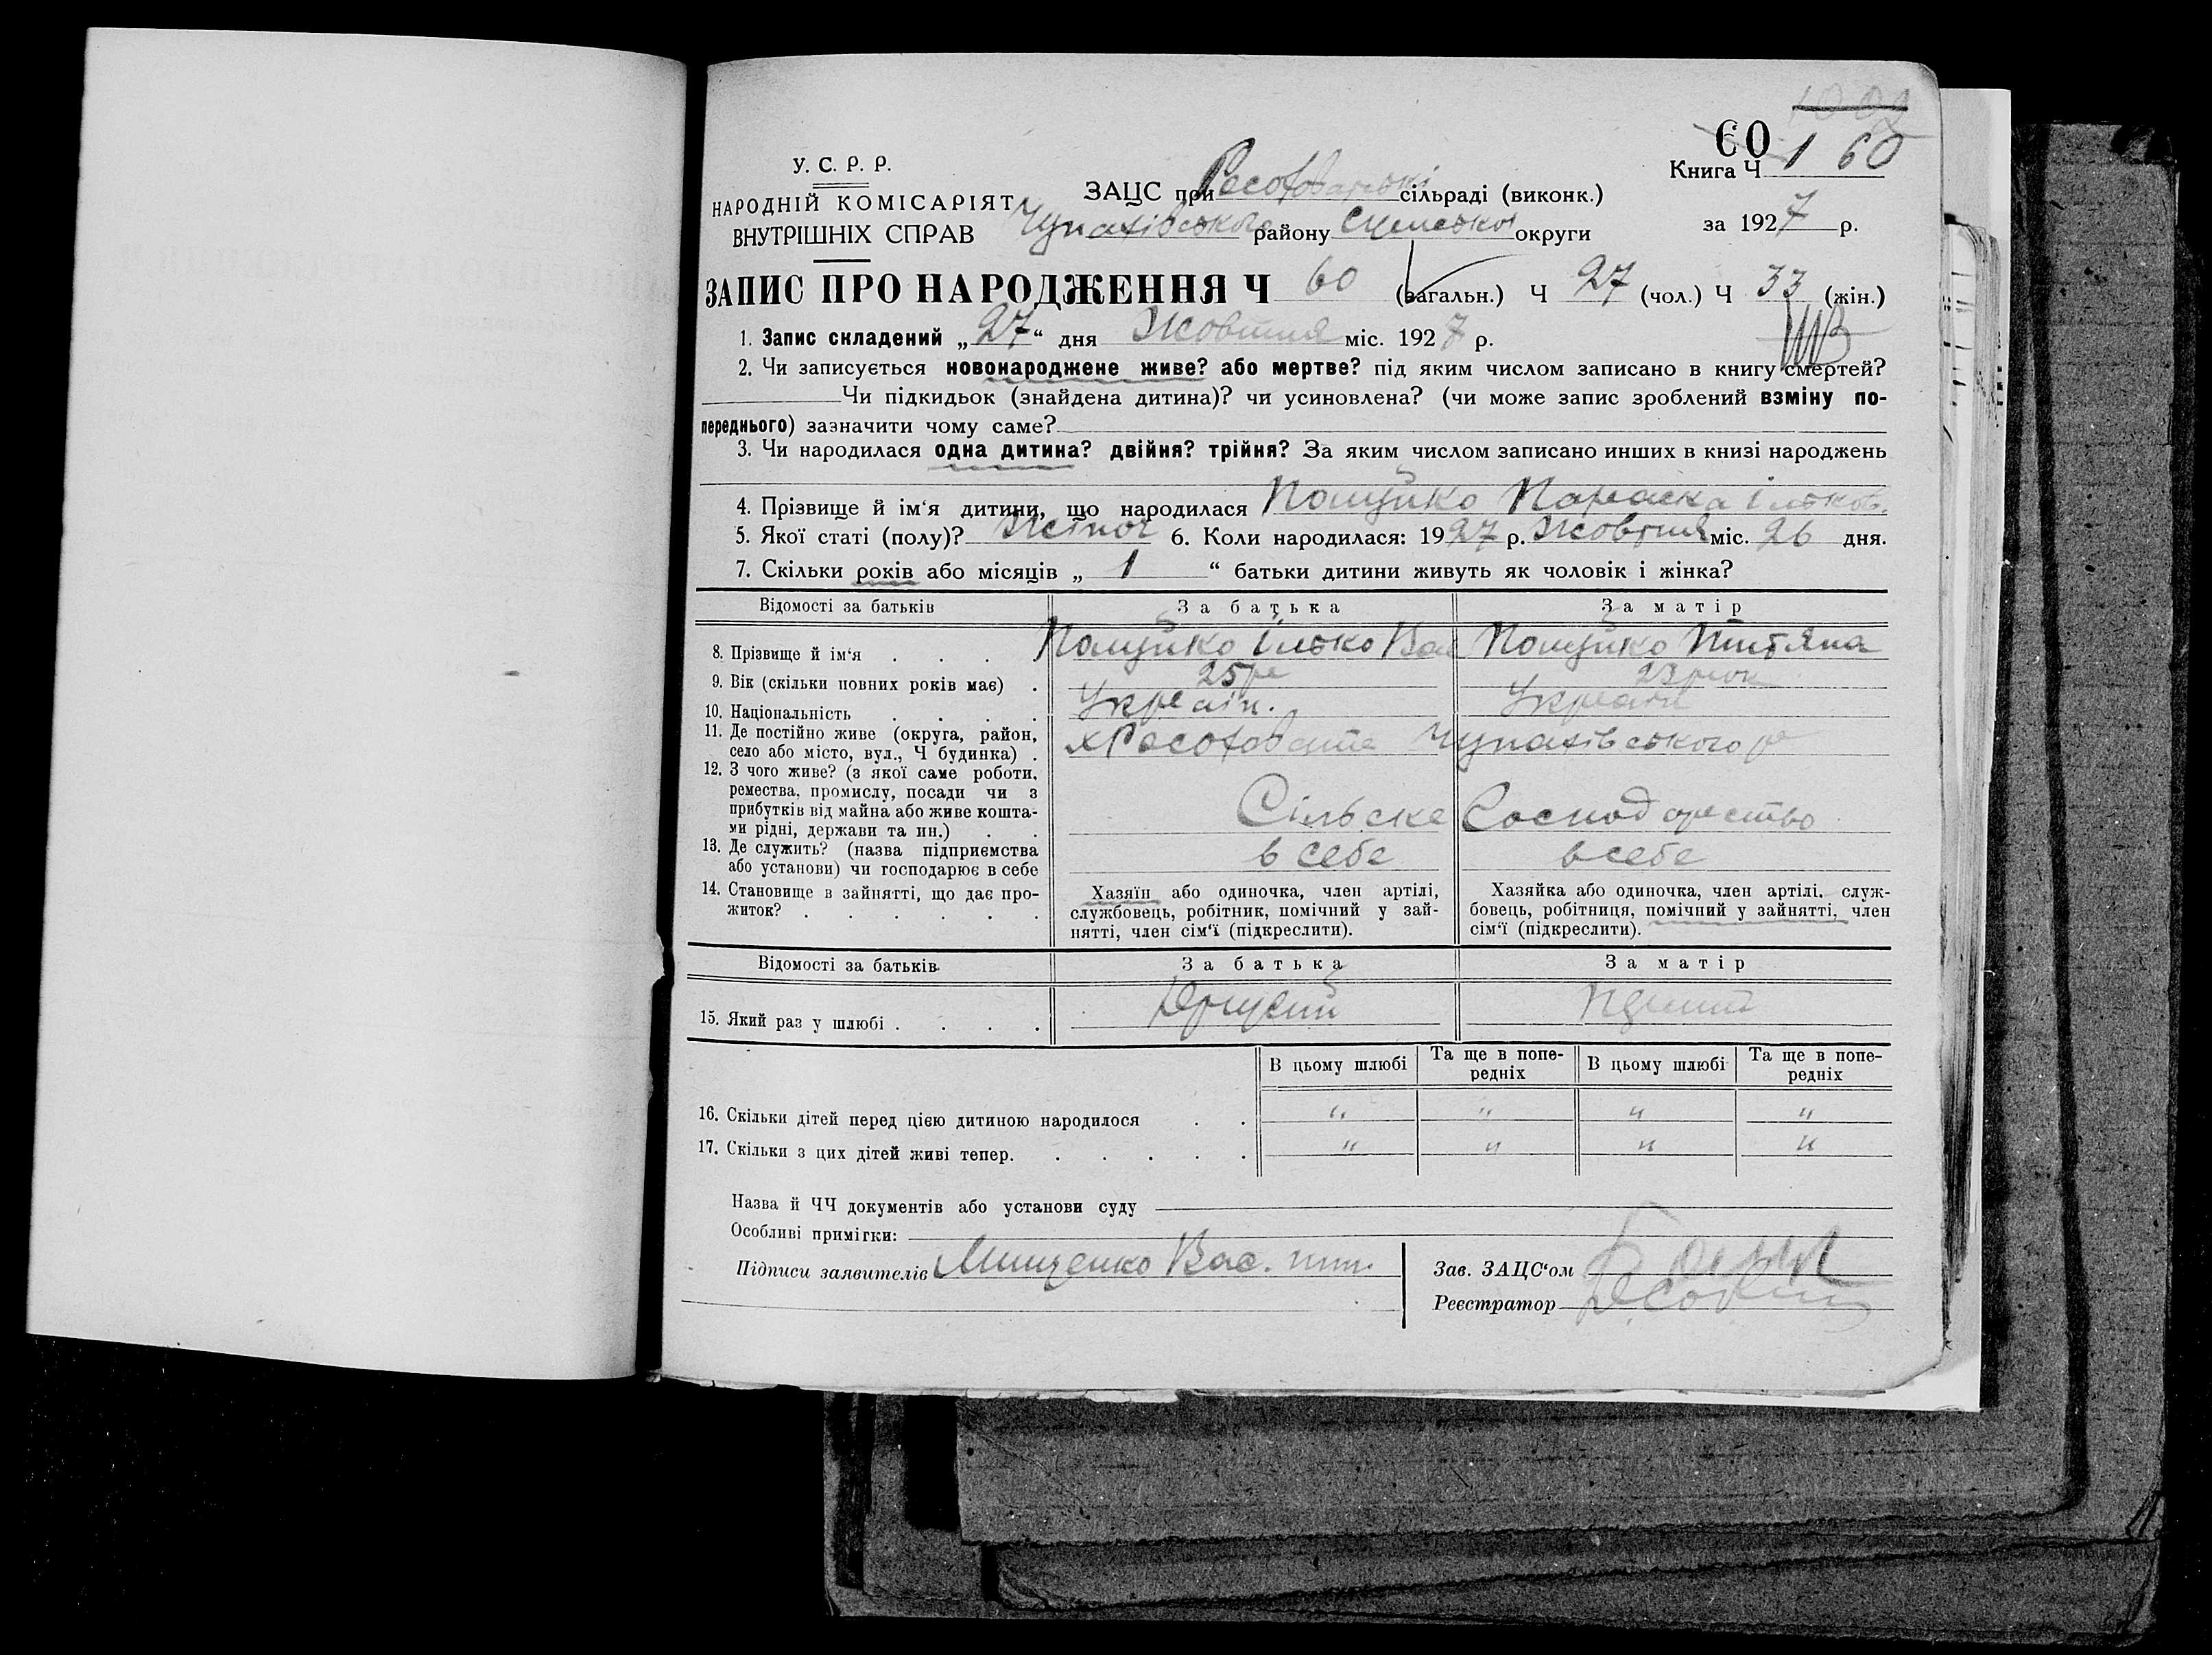 1002
60
Книга Ч 1 60
У. С. Р. Р.
НАРОДНІЙ КОМІСАРІЯТ
ВНУТРІШНІХ СПРАВ
ЗАЦС при сільраді (виконк.)
Чупахівського району Сумської округи
за 1927 р.
ЗАПИС ПРО НАРОДЖЕННЯ Ч 60 (загальн.) Ч 27 (чол.) Ч 33 (жін.)
1. Запис складений „27“ дня Жовтня міс. 1927 р.
2. Чи записується новонароджене живе? або мертве? під яким числом записано в книгу смертей?
Чи підкидьок (знайдена дитина)? чи усиновлена? (чи може запис зроблений взміну по-
переднього) зазначити чому саме?
3. Чи народилася одна дитина? двійня? трійня? За яким числом записано инших в книзі народжень
4. Прізвище й ім‘я дитини, що народилася Параска Ільков.
5. Якої статі (полу)? Жіноч 6. Коли народилася: 1927 р. Жовтня міс. 26 дня.
7. Скільки років або місяців „ 1 “ батьки дитини живуть як чоловік і жінка?
Відомості за батьків За батька За матір
8. Прізвище й ім‘я . . . . Ілько Вас
9. Вік (скільки повних років має) . 25 ре 23 рок
10. Національність . . . . Україн. Україн
11. Де постійно живе (округа, район,
село або місто, вул., Ч будинка) . Чупахівського р
12. З чого живе? (з якої саме роботи,
ремества, промислу, посади чи з
прибутків від майна або живе кошта-
ми рідні, держави та ин.) . . Сільске Господарство
13. Де служить? (назва підприємства
або установи) чи господарює в себе в себе в себе
14. Становище в зайнятті, що дає про-
житок? . . . . . .
Хазяїн або одиночка, член артілі,
службовець, робітник, помічний у зай-
нятті, член сім‘ї (підкреслити).
Хазяйка або одиночка, член артілі, служ-
бовець, робітниця, помічний у зайнятті, член
сім‘ї (підкреслити).
Відомості за батьків За батька За матір
15. Який раз у шлюбі . . . . Другий
В цьому шлюбі Та ще в попе-
редніх В цьому шлюбі Та ще в попе-
редніх
16. Скільки дітей перед цією дитиною народилося . . „ „ „ „
17. Скільки з цих дітей живі тепер. . . . . . „ „ „ „
Назва й ЧЧ документів або установи суду
Особливі примігки:
Підписи заявителів Мищенко Вас.
Зав. ЗАЦС‘ом
Реєстратор